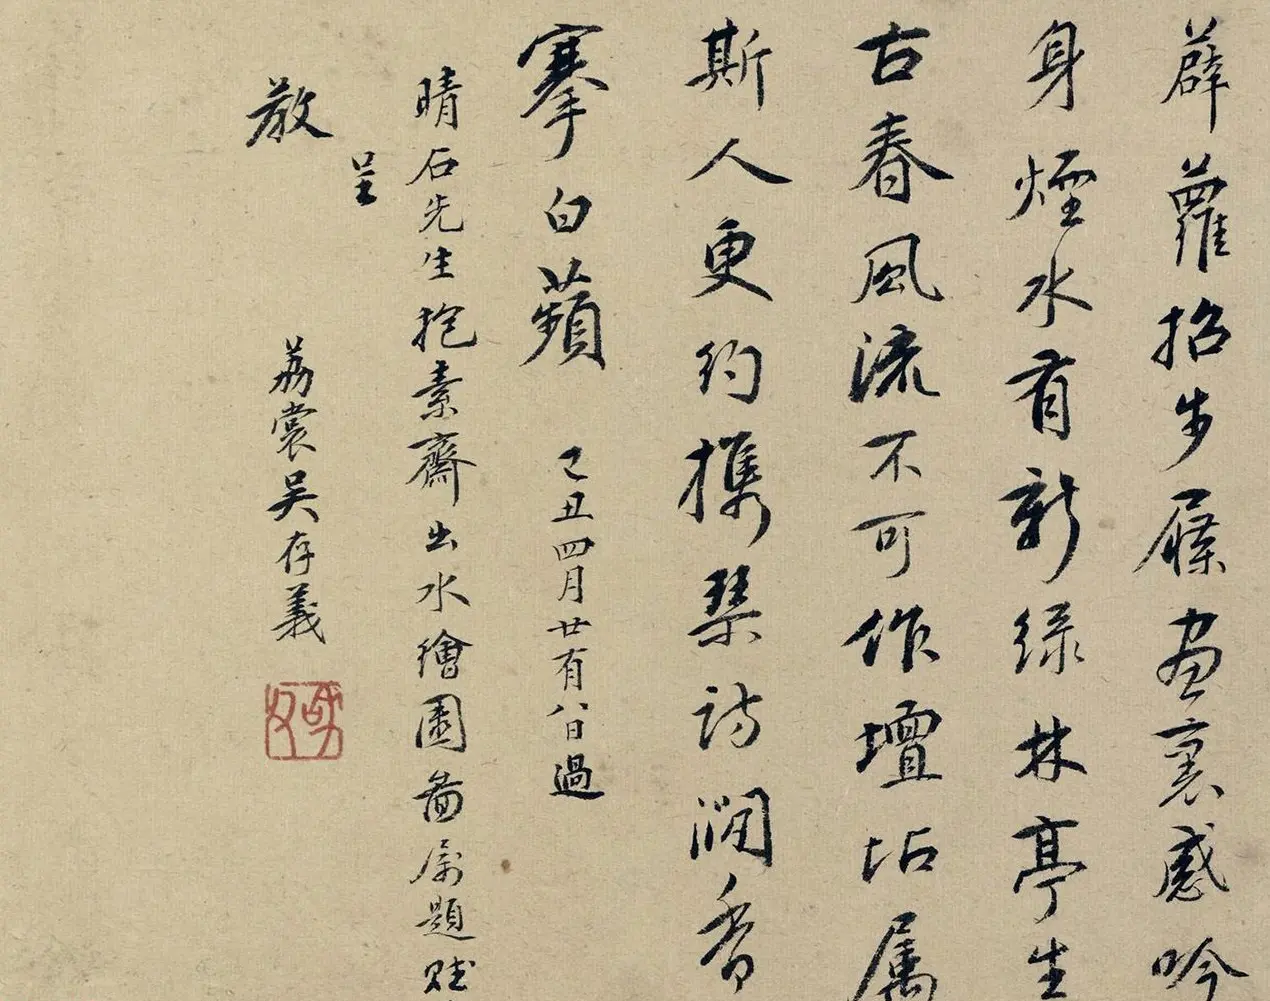 薜蘿招步屧畫裏感吟
身煙水有新綠林亭生
古春風流不可作壇坫屬
斯人更約攜琴訪澗香
搴白蘋
己丑四月廿有八日過
晴石先生抱素齋出水繪園啚屬題賦
呈
教
荔裳吴存義